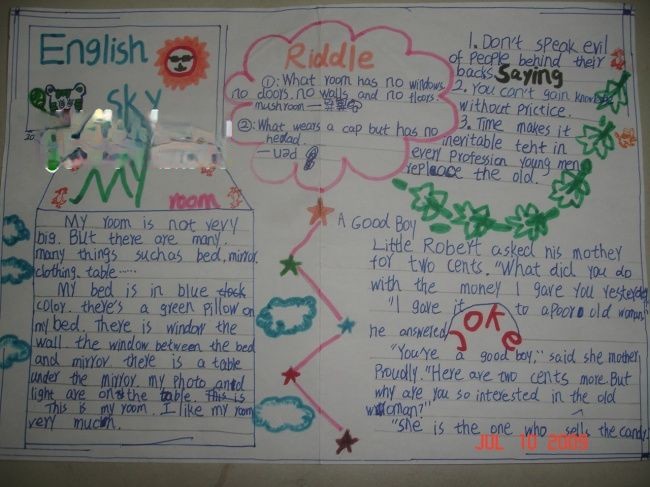 English
SKY
MY
room
My room is not very
big. But there are many
many things suchas bed. mirror.
clothing. table ……
My bed is in blue
color. there's a green pillow on
my bed. There is window the
wall the window between the bed
and mirror there is a table
under the mirror. my photo and
light are on the table. This is
This is my room. I like my room
very much.
Riddle
①: What room has no windows
no doors, no walls and no floors.
mushroom —
②: What wears a cap but has no
head.
— pen
1. Don't speak evil
of people behind their
backs
Saying
2. You can't gain knowledge
without prictice.
3. Time makes it
inevitable teht in
every profession young men
replace the old.
A Good Boy
Little Robert asked his mother
for two cents. "What did you do
with the money I gave you yesterday
"I gave it to a poor old woman"
he answered
Joke
"You're a good boy," said she mother
Proudly. "Here are two cents more. But
why are you so interested in the old
woman?"
"She is the one who sells the candy.
JUL 10 2009